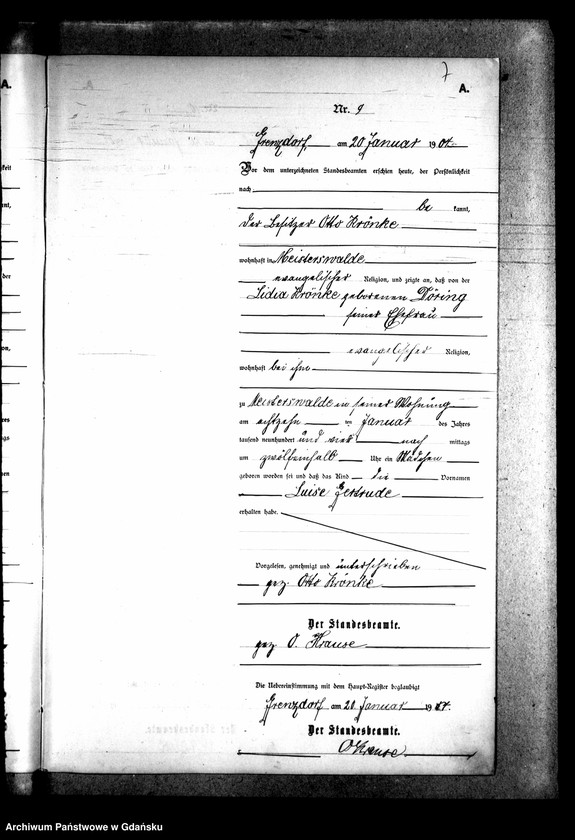 7
A.
A.
Nr. 9
Grenzdorf am 20 Januar 1904.
Vor dem unterzeichneten Standesbeamten erschien heute, der Persönlichkeit
nach
be kannt,
der Besitzer Otto Krönke
wohnhaft in Meisterswalde
evangelischer Religion, und zeigte an, daß von der
Lidia Krönke geborenen Döring
seiner Ehefrau
evangelischer Religion,
wohnhaft bei ihm
zu Meisterswalde in seiner Wohnung
am achtzehn ten Januar des Jahres
tausend neunhundert und vier nach mittags
um zwölfeinhalb Uhr ein Mädchen
geboren worden sei und daß das Kind die Vornamen
Luise Gertrude
erhalten habe.
Vorgelesen, genehmigt und unterschrieben
gez. Otto Krönke
Der Standesbeamte.
gez O. Krause
Die Uebereinstimmung mit dem Haupt-Register beglaubigt
Grenzdorf am 20 Januar 1904.
Der Standesbeamte.
O Krause
Archiwum Państwowe w Gdańsku